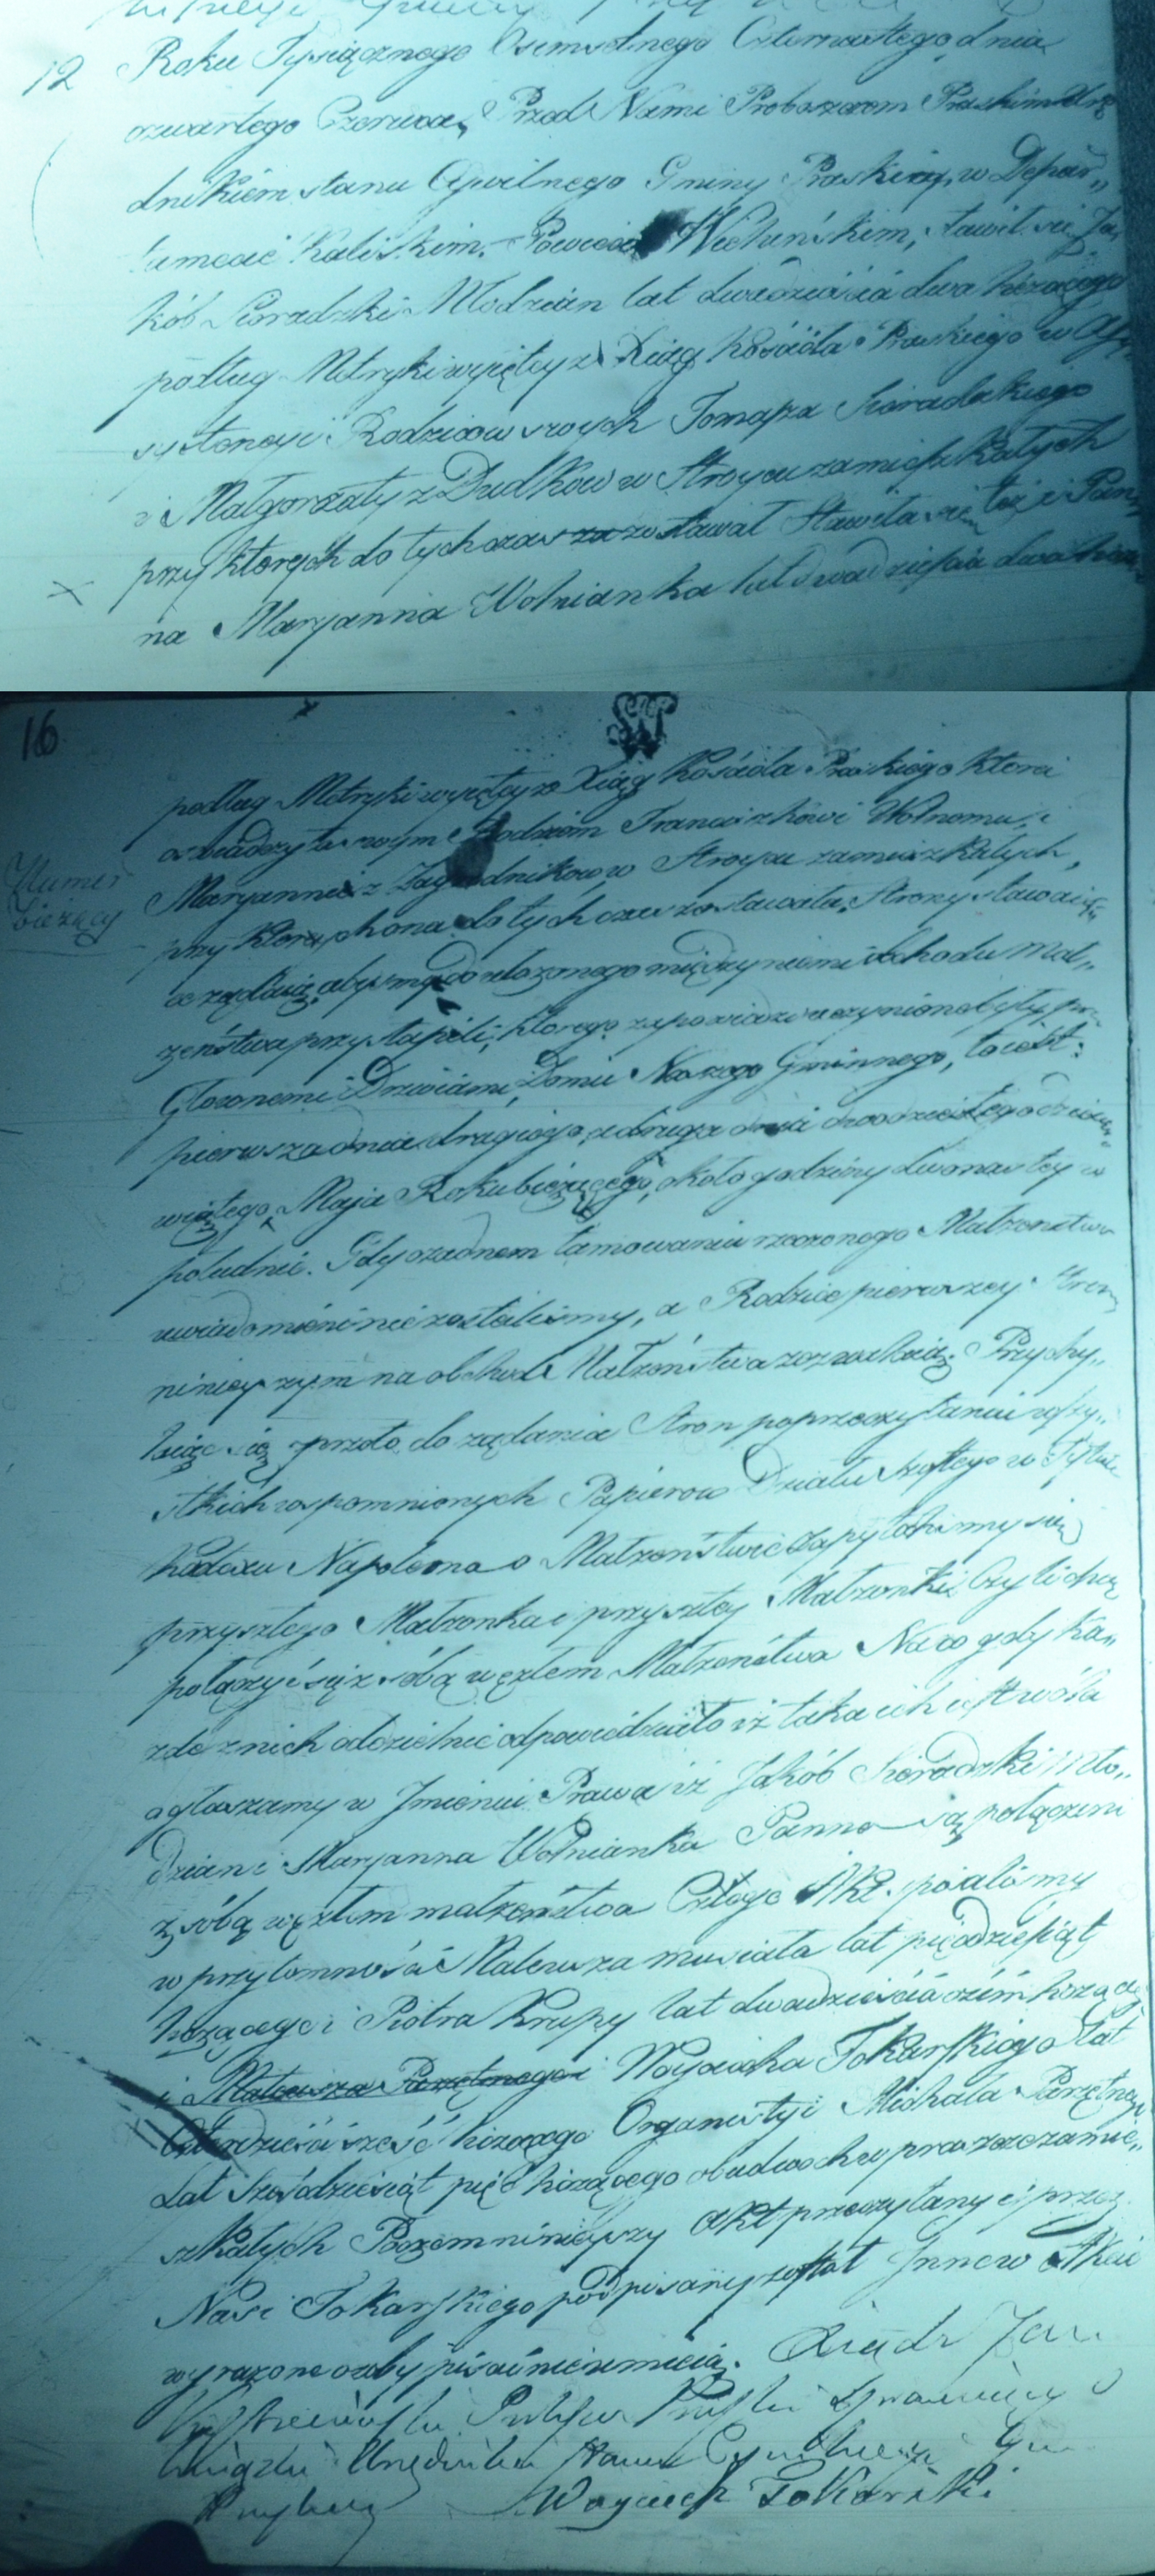 12 Roku Tysiącznego Osimsetnego Czternastego dnia
czwartego Czerwca, Przed Nami Proboszczem Praskim Urzę
dnikiem stanu Cywilnego Gminy Praskiey, w Depar„
tamencie Kaliskim. Powiecie Wieluńskim, stawił się Ja„
kób Sieradzki Młodzian lat dwadzieścia dwa liczącego
podług Metryki wyiętey z Xiąg kościoła Praskiego w Assy„
systencyi Rodziców swych Tomasza Sieradzkiego
i Małgorzaty z Dudków w Stroycu zamieszkałych
przy których do tych czas zostawał Stawiła się też i Pan„
na Maryanna Wolnianka lat dwadzieścia dwa
16
podług Metryki wyiętey z Xiąg kościoła Praskiego która
swym Rodzicom Franciszkowi Wolnemu i
Numer
bieżący
Maryannie z Zagrodników w Stroycu zamieszkałych,
przy których ona do tych czas zostawała, Strony stawaiące
żądaią, abyśmy do ułożonego między niemi obchodu Mał„
żeństwa przystąpili, którego zapowiedzi uczynione były przed
Głównemi Drzwiami Domu Naszego Gminnego, to iest:
pierwsza dnia drugiego, a druga dnia dwudziestego dzie
wiątego Maja Roku bieżącego, około godziny dwunastey w
południe. Gdy o żadnem tamowaniu rzeczonego Małżeństwa
uwiadomieni nie zostaliśmy, a Rodzice pierwszey Strony
ninieyszym na obchód Małżeństwa zezwalaią. Przychy„
laiąc się przeto do żądania Stron po przeczytaniu wszy„
stkich wspomnionych Papierów Działu szóstego w Tytule
kodexu Napoleona o Małżeństwie zapytaliśmy się
przyszłego Małżonka i przyszłey Małżonki Czyli chcą
połączyć się z sobą węzłem Małżeństwa Na co gdy ka„
żde z nich oddzielnie odpowiedziało iż taka ich iest wola
ogłaszamy w Jmieniu Prawa iż Jakób Sieradzki Mło„
dzian i Maryanna Wolnianka Panna są połączeni
z sobą węzłem małżeństwa Czego Akt spisaliśmy
w przytomności Mateusza musiała lat pięćdziesiąt
liczącego i Piotra Krupy lat dwadzieścia ośm liczące
i Mateusza Parzętnego i Woyciecha Tokarskiego Lat
Czterdzieści sześć liczącego Organisty i Michała Parzętnego
Lat sześćdziesiąt pięć liczącego obudwóch w praszce zamie„
szkałych Poczem ninieyszy Akt przeczytany i przez
Nas i Tokarskiego podpisany został Jnne w Akcie
wyrażone osoby pisać nie umieią. Xiądz Jan
Urzędnika Stanu
Woyciech Tokarski